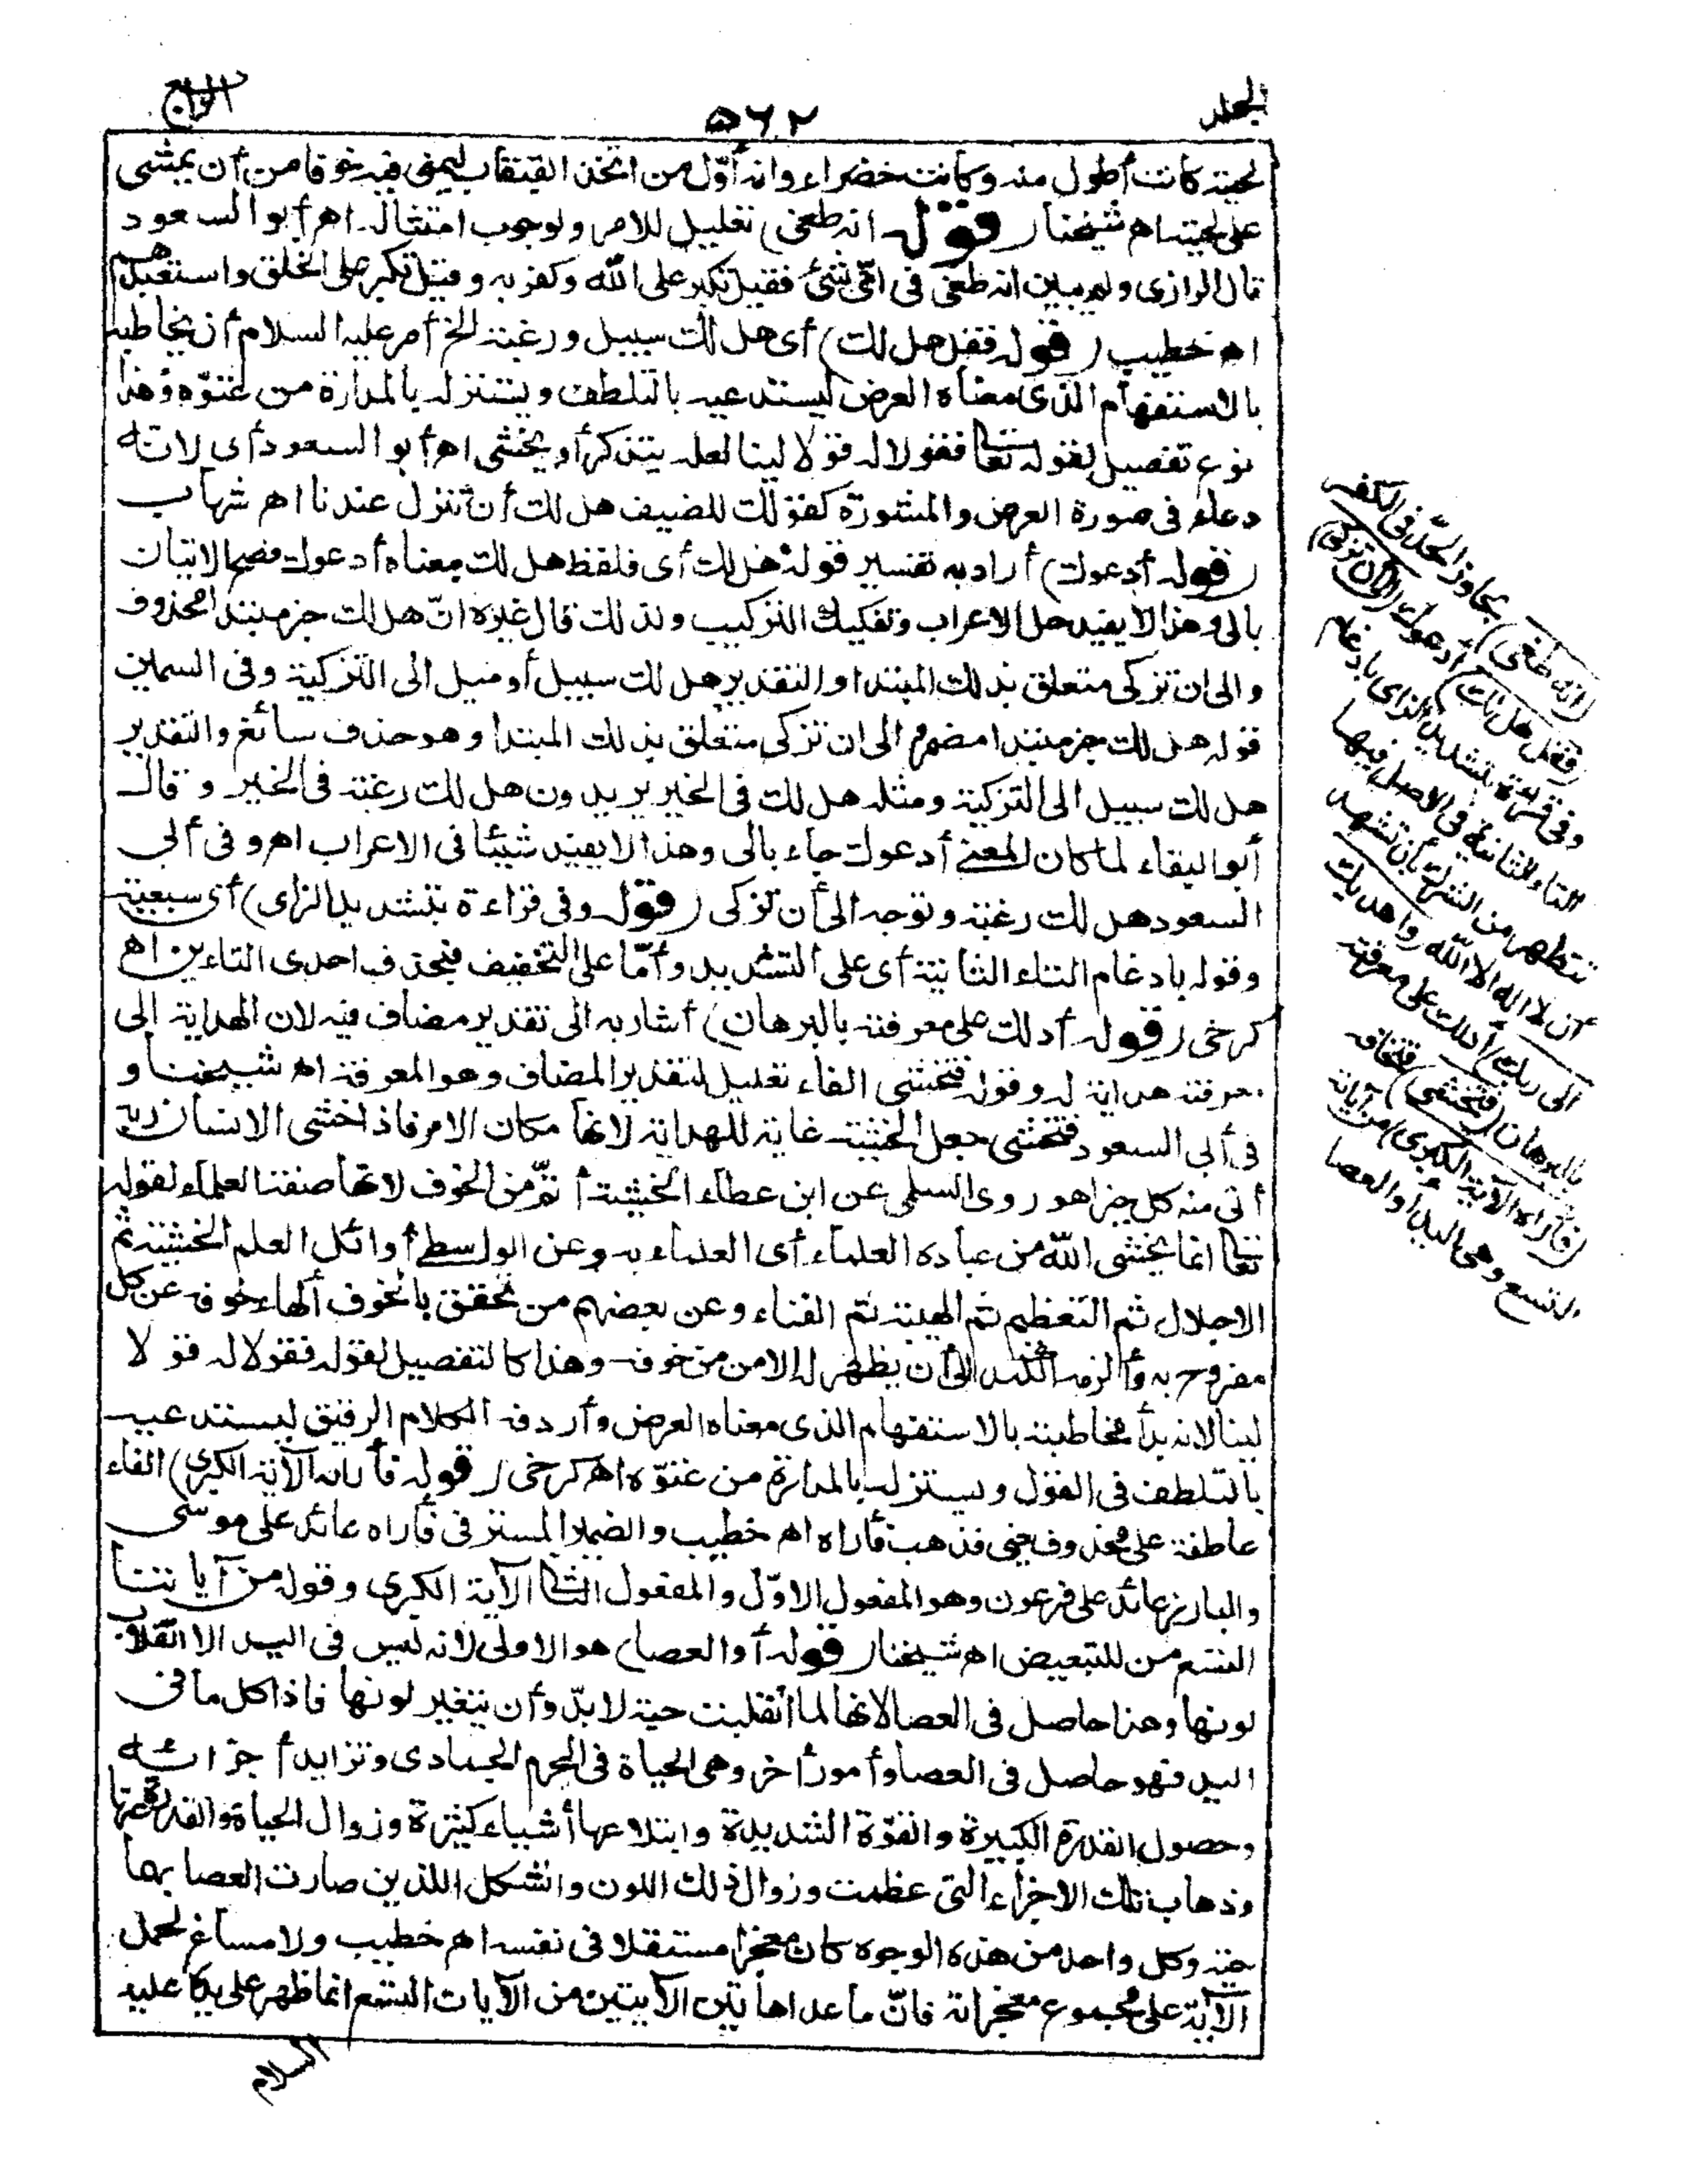 المجلد
٥٦٢
الرابع
لحيته كانت أطول منه وكانت خضراء وانه أوّل من اتخذ القبقاب ليمشى فيه خوفا من أن يمشى
على لحيته اه شيخنا (قوله انه طغى) تعليل للامر ولوجوب امتثاله اه أبو السعود
قال الرازى ولم يبين انه طغى فى أىّ شئ فقيل تكبر على الله وكفر به وقيل تكبر على الخلق واستعبدهم
اه خطيب (قوله فقل هل لك) أى هل لك سبيل ورغبة الخ أمر عليه السلام أن يخاطبه
بالاستفهام الذى معناه العرض ليستدعيه بالتلطف ويستنزله بالمداراة من عتوّه وهذا
نوع تفصيل لقوله تعا فقولا له قولا لينا لعله يتذكر أو يخشى اه أبو السعود أى لانه
دعاء فى صورة العرض والمشورة كقولك للضيف هل لك أن تنزل عندنا اه شهاب
(قوله أدعوك) أراد به تفسير قوله هل لك أى فلفظ هل لك معناه أدعوك فصح الاتيان
بالى وهذا لا يفيد حل الاعراب وتفكيك التركيب ولذلك قال غيره انّ هل لك خبر مبتدا محذوف
والى ان تزكى متعلق بذلك المبتدا والتقدير هل لك سبيل أو ميل الى التزكية وفى السمين
قوله هل لك خبر مبتدا مضمر الى ان تزكى متعلق بذلك المبتدا وهو حذف سائغ والتقدير
هل لك سبيل الى التزكية ومثله هل لك فى الخير يريدون هل لك رغبة فى الخير وقال
أبو البقاء لما كان المعنى أدعوك جاء بالى وهذا لا يفيد شيئا فى الاعراب اه وفى أبى
السعود هل لك رغبة وتوجه الى أن تزكى (قوله وفى قراءة بتشديد الزاى) أى سبعية
وقوله بادغام التاء الثانية أى على التشديد وأمّا على التخفيف فبحذف احدى التاءين اه
كرخى (قوله أدلك على معرفته بالبرهان) أشار به الى تقدير مضاف فيه لان الهداية الى
معرفته هداية له وقوله فتخشى الفاء تعليل لتقدير المضاف وهو المعرفة اه شيخنا و
فى أبى السعود فتخشى جعل الخشية غاية للهداية لانها مكان الامر فاذا خشى الانسان ربه
أتى منه كل خير اه وروى السلمى عن ابن عطاء الخشية أتمّ من الخوف لانها صفة العلماء لقوله
تعا انما يخشى الله من عباده العلماء أى العلماء به وعن الواسطى أوائل العلم الخشية ثم
الاجلال ثم التعظيم ثم الهيبة ثم الفناء وعن بعضهم من تحقق بالخوف ألهاه خوفه عن كل
مفروح به وألزمه الكمد الى أن يظهر له الامن من خوفه وهذا كالتفصيل لقوله فقولا له قولا
لينا لانه بدأ مخاطبته بالاستفهام الذى معناه العرض وأردفه الكلام الرفيق ليستدعيه
بالتلطف فى القول ويستنزله بالمداراة من عتوّه اه كرخى (قوله فأراه الآية الكبرى) الفاء
عاطفة على محذوف يعنى فذهب فأراه اه خطيب والضمير المستتر فى فأراه عائد على موسى
والبارز عائد على فرعون وهو المفعول الاوّل والمفعول الثانى الآية الكبرى وقوله من آياتنا
التسع من للتبعيض اه شيخنا (قوله أو العصا) هو الاولى لانه ليس فى اليد الا انقلاب
لونها وهذا حاصل فى العصا لانها لما انقلبت حية لا بدّ وأن يتغير لونها فاذا كل ما فى
اليد فهو حاصل فى العصا وأمور أخر وهى الحياة فى الجرم الجمادى وتزايد أجزائه
وحصول القدرة الكبيرة والقوّة الشديدة وابتلاعها أشياء كثيرة وزوال الحياة والقدرة عنها
وذهاب تلك الاجزاء التى عظمت وزوال ذلك اللون والشكل اللذين صارت العصا بهما
حية وكل واحد من هذه الوجوه كان معجزا مستقلا فى نفسه اه خطيب ولا مساغ لحمل
الآية على مجموع معجزاته فانّ ما عدا هاتين الآيتين من الآيات التسع انما ظهر على يده عليه
السلام
(انه طغى) تجاوز الحدّ فى الكفر
(فقل هل لك) أدعوك (الى ان تزكى)
وفى قراءة بتشديد الزاى بادغام
التاء الثانية فى الاصل فيها
تتطهر من الشرك بأن تشهد
أن لا اله الا الله (وأهديك
الى ربك) أدلك على معرفته
بالبرهان (فتخشى) فتخافه
(فأراه الآية الكبرى) من آياته
التسع وهى اليد أو العصا